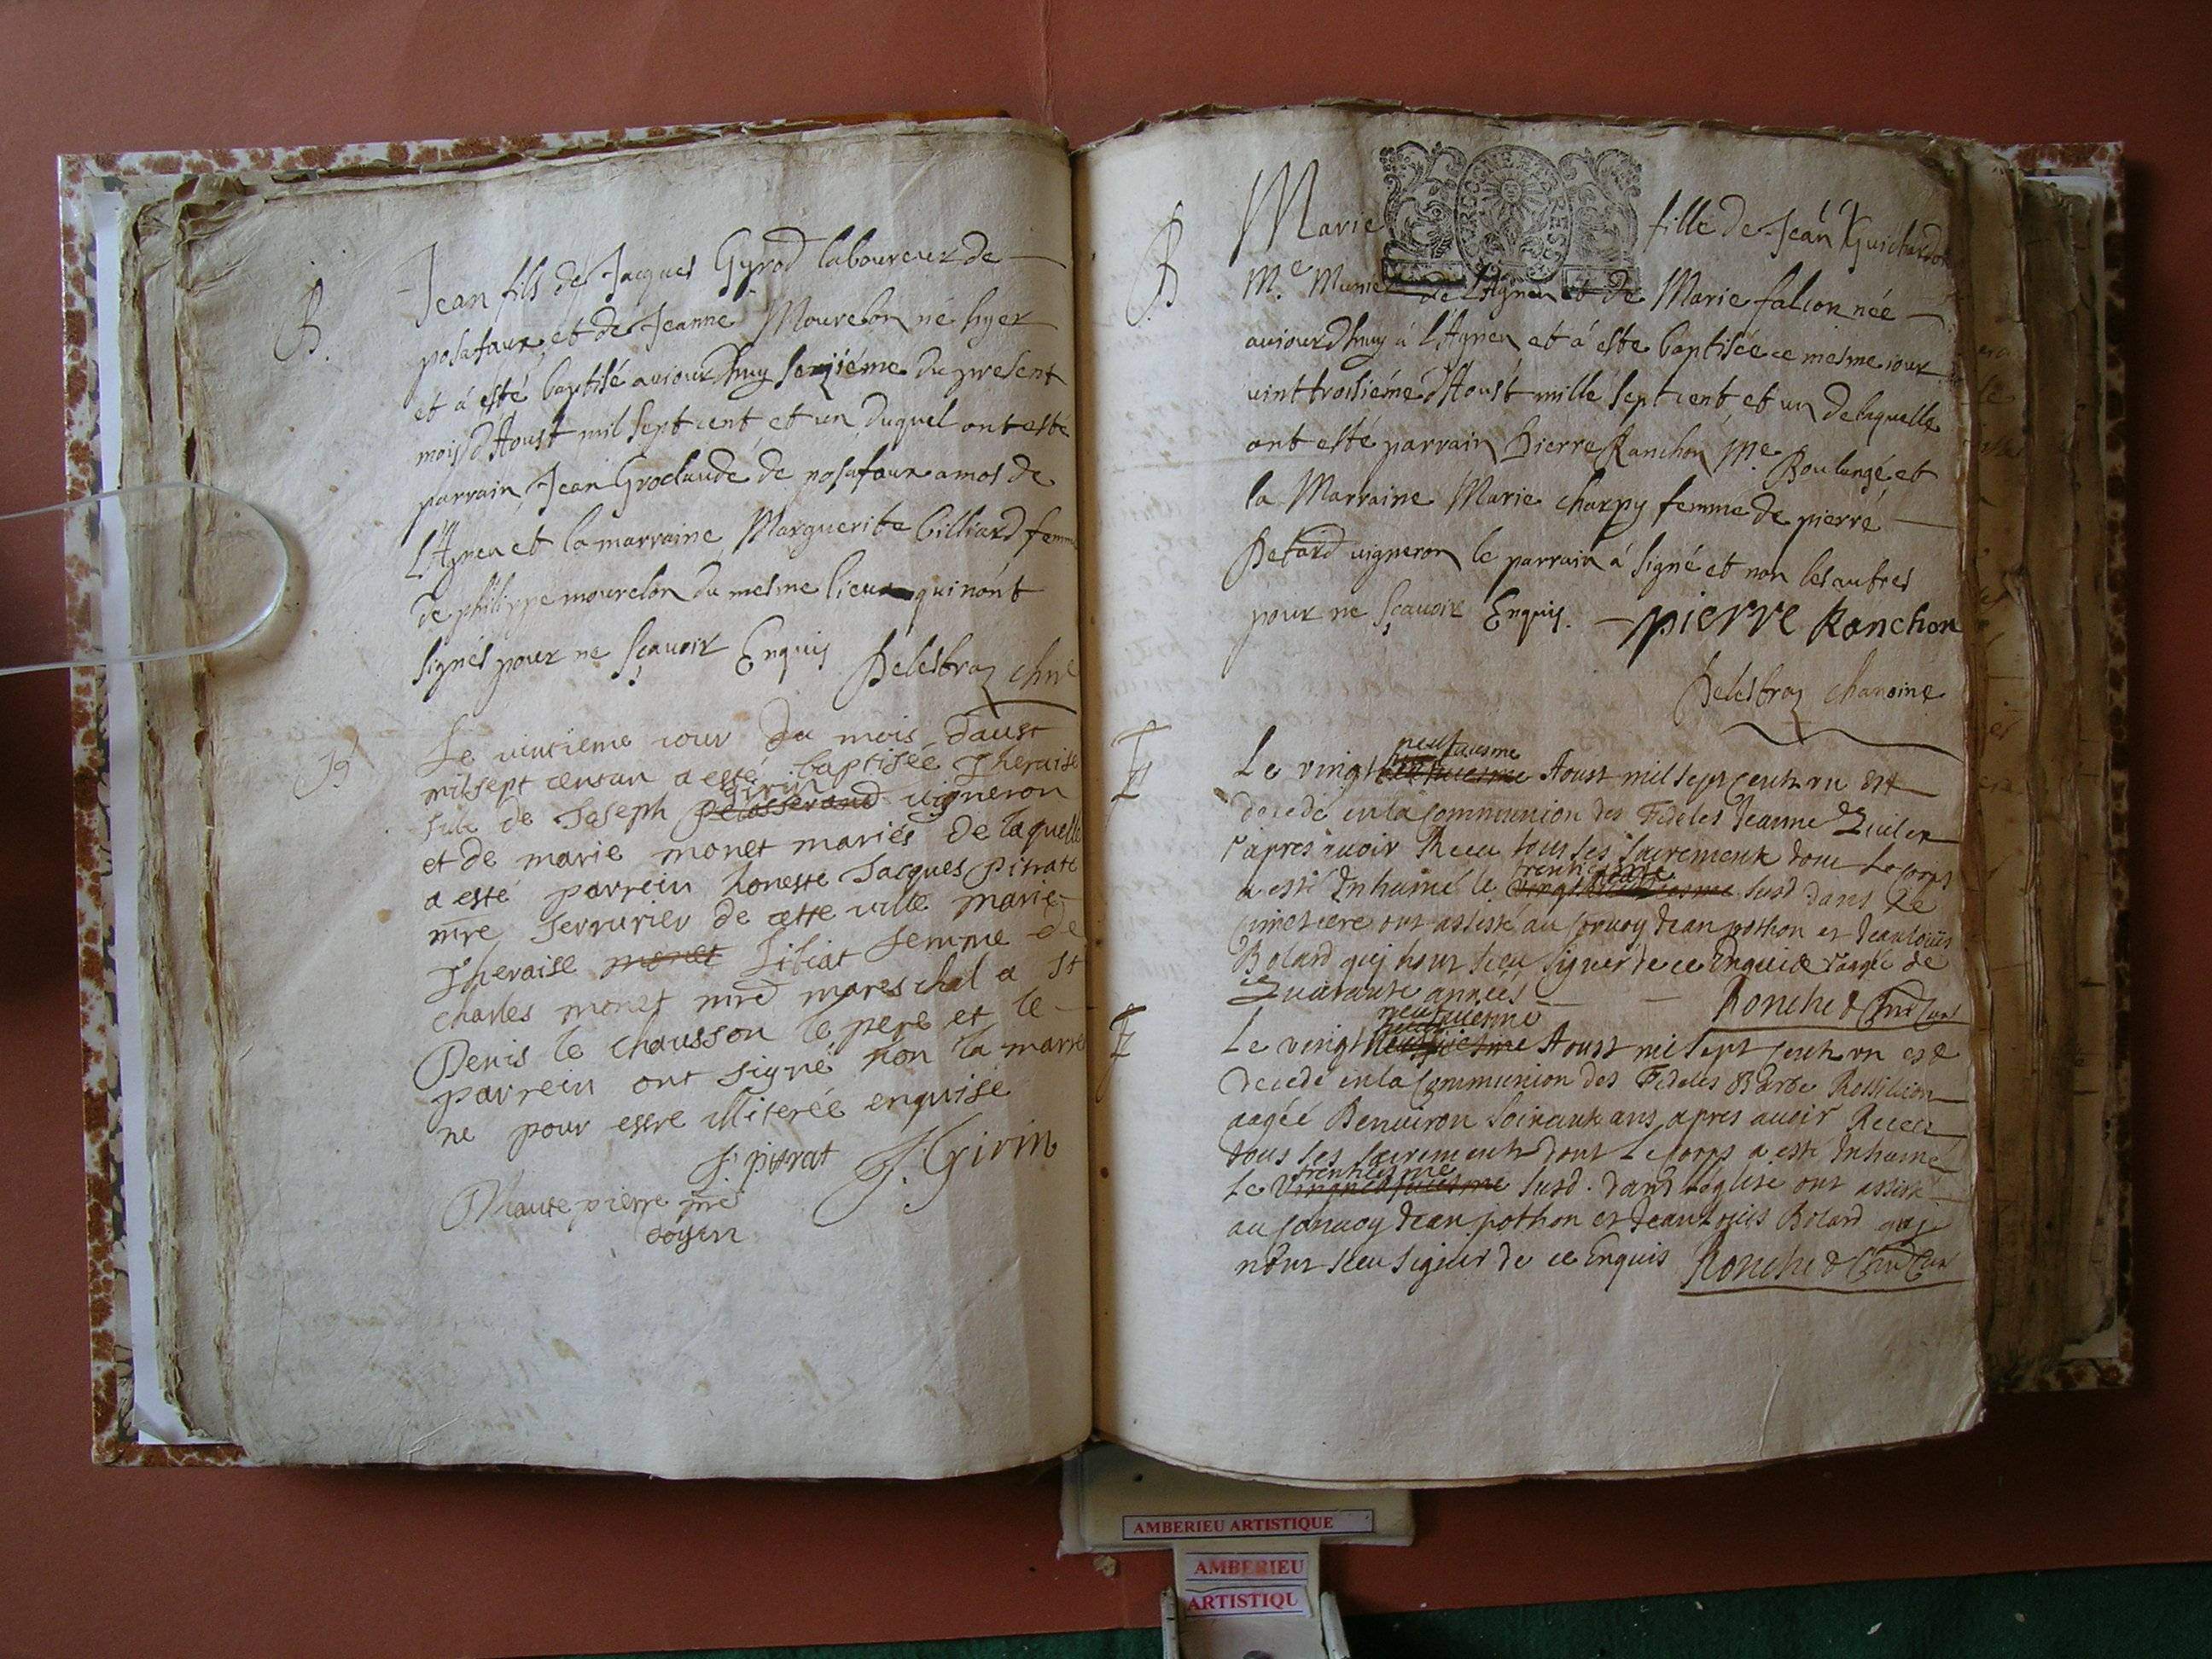 B.
Jean fils de Jacques Gyrod laboureur de
posafaux et de Jeanne Mourelon né hyer
et à esté baptisé auiourdhuy seziéme du present
mois d'Aoust mil sept cent et un duquel ont esté
parrain Jean Groclaude de posafaux amos de
L'Agneu et la marraine Marguerite billiard femme
de philippe mourelon du mesme lieu qui n'ont
signés pour ne sçauoir Enquis Delestraz chne
Le vintieme iour du mois daust
mil sept cent un a esté baptisée Theraise
fille de Joseph Girin pelasserand uigneron
et de marie monet mariés de laquelle
a esté parrein honeste Jacques pitrat
mre serrurier de cette ville marie
Theraise monet Sibiat femme de
charles monet mre mareschal a St
Denis le chausson le pere et le
parrein ont signé non la marrei
ne pour estre illiterée enquise
J. pitrat J. Girin
Dhautepierre pre
doyen
B
Marie fille de Jean Guichardon
Me. Munier de L'Agneu et de Marie falcon née
auiourdhuy à L'Agneu et à esté baptisée ce mesme iour
uint troisiéme d'Aoust mille sept cent et un de laquelle
ont esté parrain Pierre Ranchon Me. Boulangé et
la Marraine Marie charpy femme de pierre
Detard uigneron le parrain à signé et non les autres
pour ne sçauoir Enquis. pierre Ranchon
Delestraz chanoine
Le vingt neufuiesme Aoust mil sept cent vn est
decedé en la Communion des Fideles Jeanne
apres auoir Receu tous ses sacrements dont Le Corps
a esté Inhumé le trentiesme susd dans Le
Cimetiere ont assisté au Conuoy Jean pothon et Jean Louis
Bolard quj n'ont sceu signer de ce Enquis aagée de
Quarante années Ronche
Le vingt neufuiesme Aoust mil sept cent vn est
decedé en la Communion des Fideles Barbe Rossilion
aagée Denuiron Soixante ans apres auoir Receu
tous ses sacrements dont Le Corps a esté Inhumé
Le trentiesme susd. dans Leglise ont assisté
au Conuoy Jean pothon et Jean Louis Bolard quj
nont sceu signer de ce Enquis Ronche
AMBERIEU ARTISTIQUE
AMBERIEU
ARTISTIQU